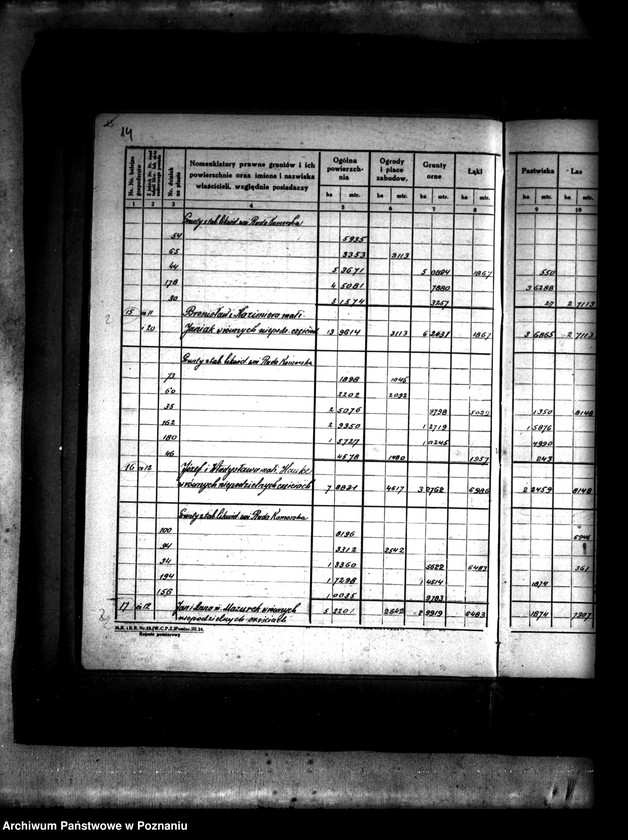 14
Nr. Nr. bieżące gospodarstw
Nr. działek na planie
Nomenklatury prawne gruntów i ich powierzchnie oraz imiona i nazwiska właścicieli, względnie posiadaczy
Ogólna powierzchnia
Ogrody i place zabudow.
Grunty orne
Łąki
Pastwiska
Las
ha mtr. ha mtr. ha mtr. ha mtr. ha mtr. ha mtr.
1 2 3 4 5 6 7 8 9 10
Grunty z tab. likwid. wsi Ruda Komorska
54 5935
65 3353 3113
44 5 3671 5 0884 1867 550
178 4 5081 7880 3 6288
30 3 1574 3267 27 2 7113
15 11 Bronisław i Kazimiera małż.
20 Janiak w równych niepodz. częściach 13 9614 3113 6 2031 1867 3 6865 2 7113
Grunty z tab. likwid. wsi Ruda Komorska
73 1898 1045
60 2202 2092
35 2 5076 9798 5029 1350 8148
162 2 9350 1 2719 1 5876
180 1 5727 1 0245 4990
46 4578 1480 1957 243
16 12 Józef i Władysława małż. Hauke
w równych niepodzielnych częściach 7 8831 4617 3 2762 6986 2 2459 8148
Grunty z tab. likwid. wsi Ruda Komorska
100 8196
94 3312 2642
34 1 3360 5622 6483 361
194 1 7298 1 4514 1874
156 1 0035 9783
17 12 Jan i Anna m. Mazurek w równych
niepodzielnych częściach 5 2201 2642 2 9919 6483 1874 7307
Rejestr pomiarowy
Archiwum Państwowe w Poznaniu